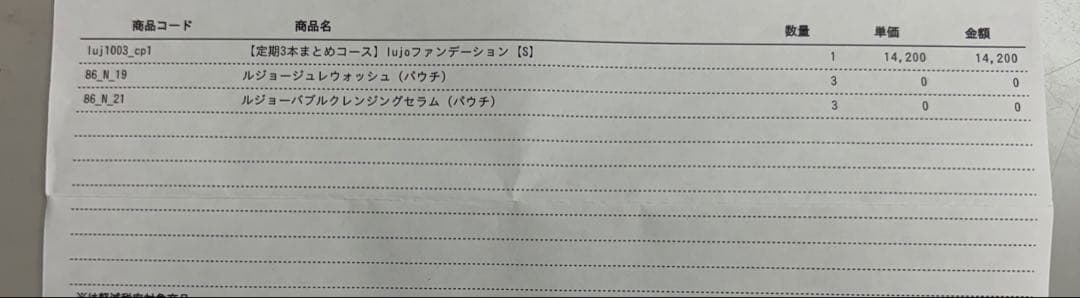 商品コード 商品名 数量 単価 金額
luj1003_cp1 【定期3本まとめコース】lujoファンデーション【S】 1 14,200 14,200
86_N_19 ルジョージュレウォッシュ（パウチ） 3 0 0
86_N_21 ルジョーバブルクレンジングセラム（パウチ） 3 0 0